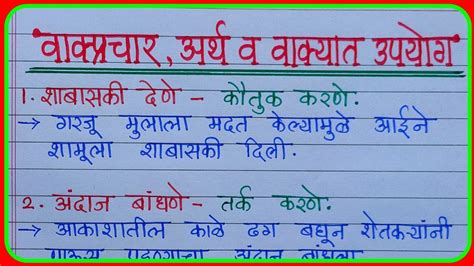 वाक्प्रचार, अर्थ व वाक्यात उपयोग
1. शाबासकी देणे - कौतुक करणे.
→ गरजू मुलाला मदत केल्यामुळे आईने
शामूला शाबासकी दिली.
2. अंदाज बांधणे - तर्क करणे.
→ आकाशातील काळे ढग बघून शेतकऱ्यांनी
अंदाज बांधला